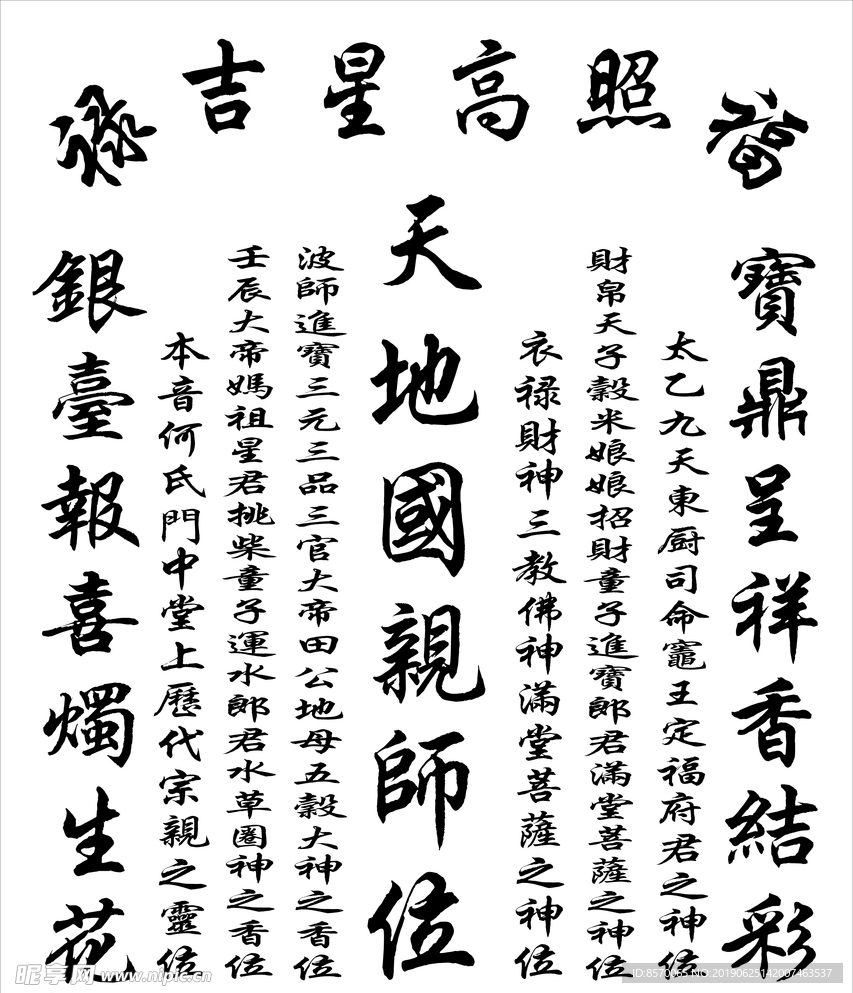 吉星高照
寶鼎呈祥香結彩
太乙九天東厨司命竈王定福府君之神位
財帛天子穀米娘娘招財童子進寶郎君滿堂菩薩之神位
衣禄財神三教佛神滿堂菩薩之神位
天地國親師位
波師進寶三元三品三官大帝田公地母五穀大神之香位
壬辰大帝媽祖星君挑柴童子運水郎君水草圈神之香位
本音何氏門中堂上歷代宗親之靈位
銀臺報喜燭生花
昵享网 www.nipic.cn
ID:8570065 NO:20190625142007463537